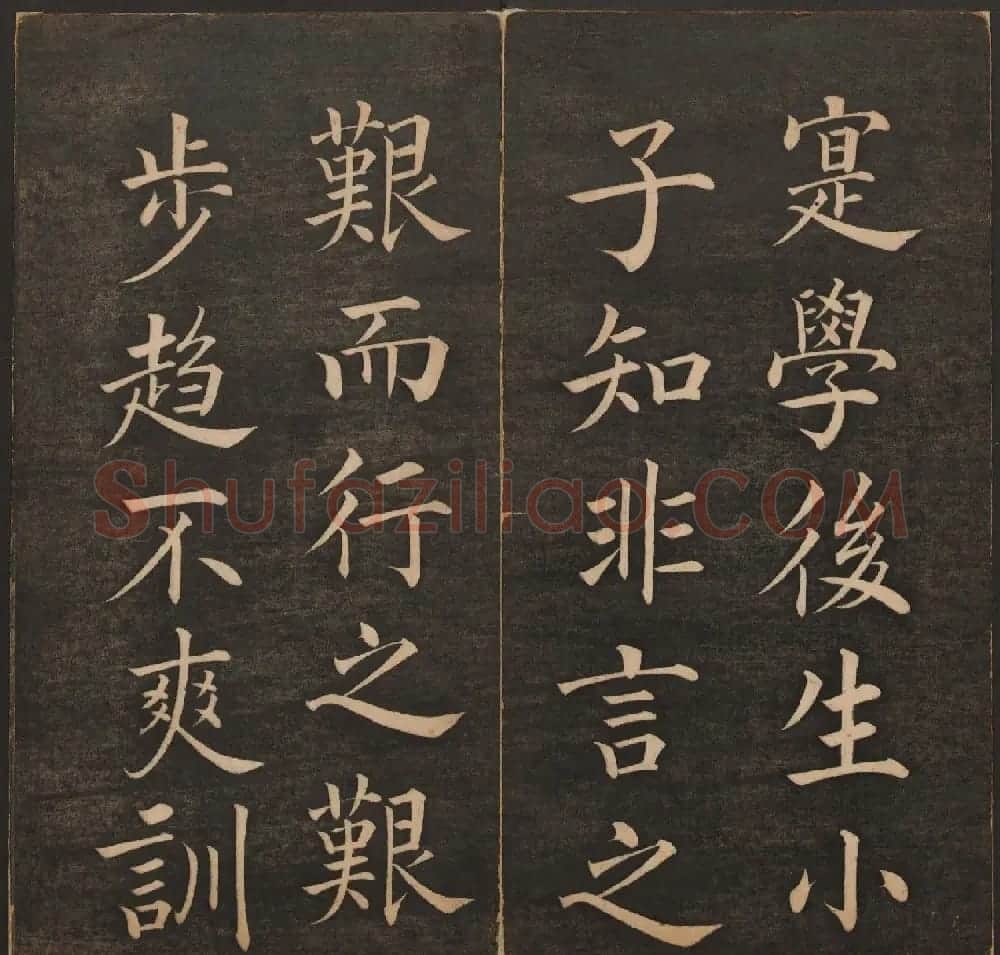 寔學後生小
子知非言之
艱而行之艱
步趨不爽訓
Shufaziliao.COM